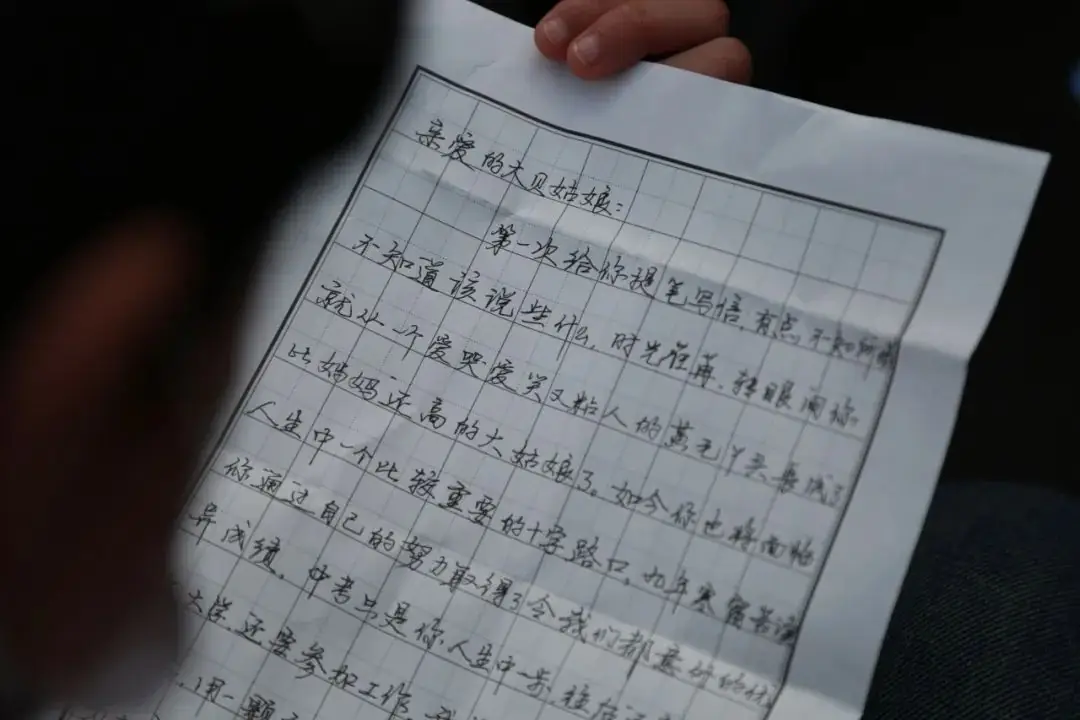 亲爱的大贝姑娘:
第一次给你提笔写信,有点不知所措
不知道该说些什么,时光荏苒,转眼间你
就从一个爱哭爱笑又粘人的黄毛丫头长成了
比妈妈还高的大姑娘了。如今你也将面临
人生中一个比较重要的十字路口,九年寒窗苦读
你通过自己的努力取得了令我们都羡慕的优
异成绩,中考只是你人生中一步,往后还
大学还要参加工作,我
,用一颗